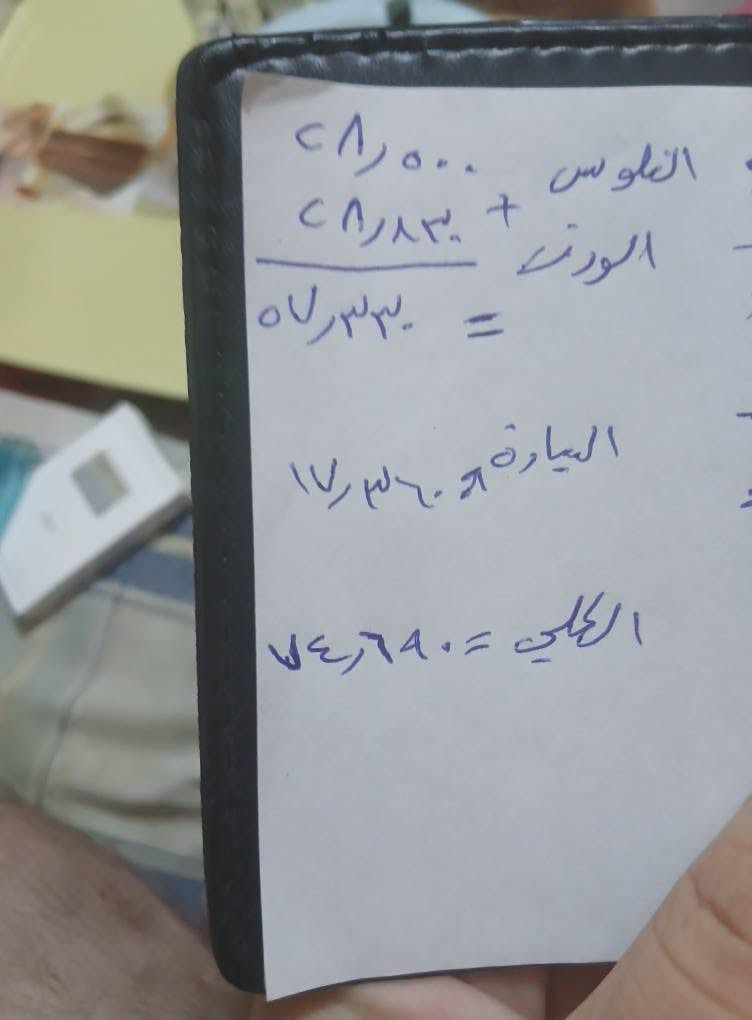 الفلوس ٢٨,٥٠٠
+ ٢٨,٨٣٠
= ٥٧,٣٣٠
السيارة = ١٧,٣٦٠
الكلي = ٧٤,٦٩٠